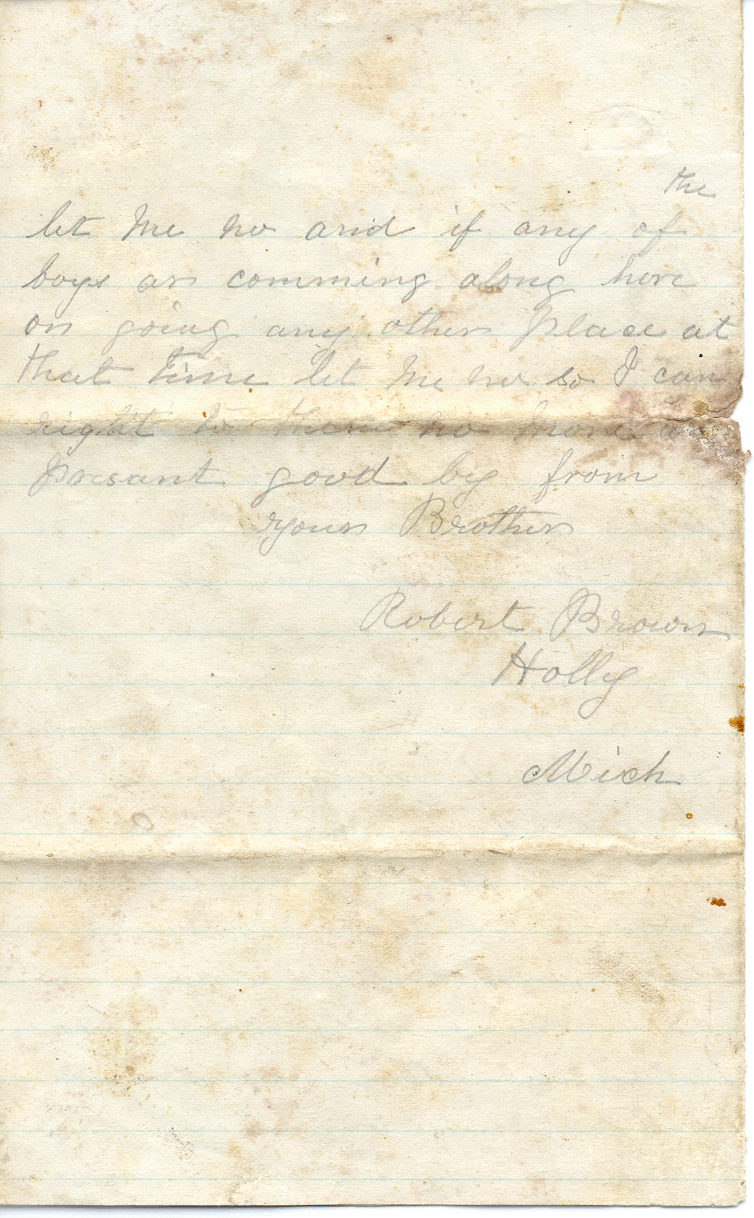 the
let me no and if any of
boys ar comming along here
or going any other place at
that time let me no so I can
right to them no more at
presant good by from
your Brother
Robert Brown
Holly
Mich